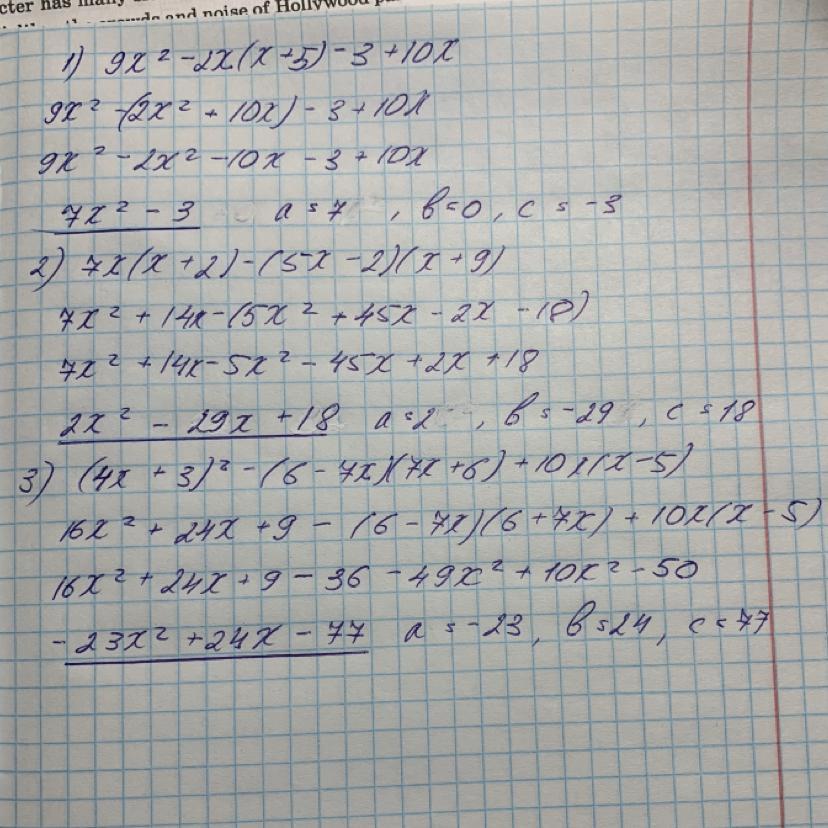 cter has many
and noise of Hollywood
1) 9x² - 2x(x+5) - 3 + 10x
9x² - (2x² + 10x) - 3 + 10x
9x² - 2x² - 10x - 3 + 10x
7x² - 3 a = 7, b = 0, c = -3
2) 7x(x + 2) - (5x - 2)(x + 9)
7x² + 14x - (5x² + 45x - 2x - 18)
7x² + 14x - 5x² - 45x + 2x + 18
2x² - 29x + 18 a = 2, b = -29, c = 18
3) (4x + 3)² - (6 - 7x)(7x + 6) + 10x(x - 5)
16x² + 24x + 9 - (6 - 7x)(6 + 7x) + 10x(x - 5)
16x² + 24x + 9 - 36 - 49x² + 10x² - 50
-23x² + 24x - 77 a = -23, b = 24, c = 77